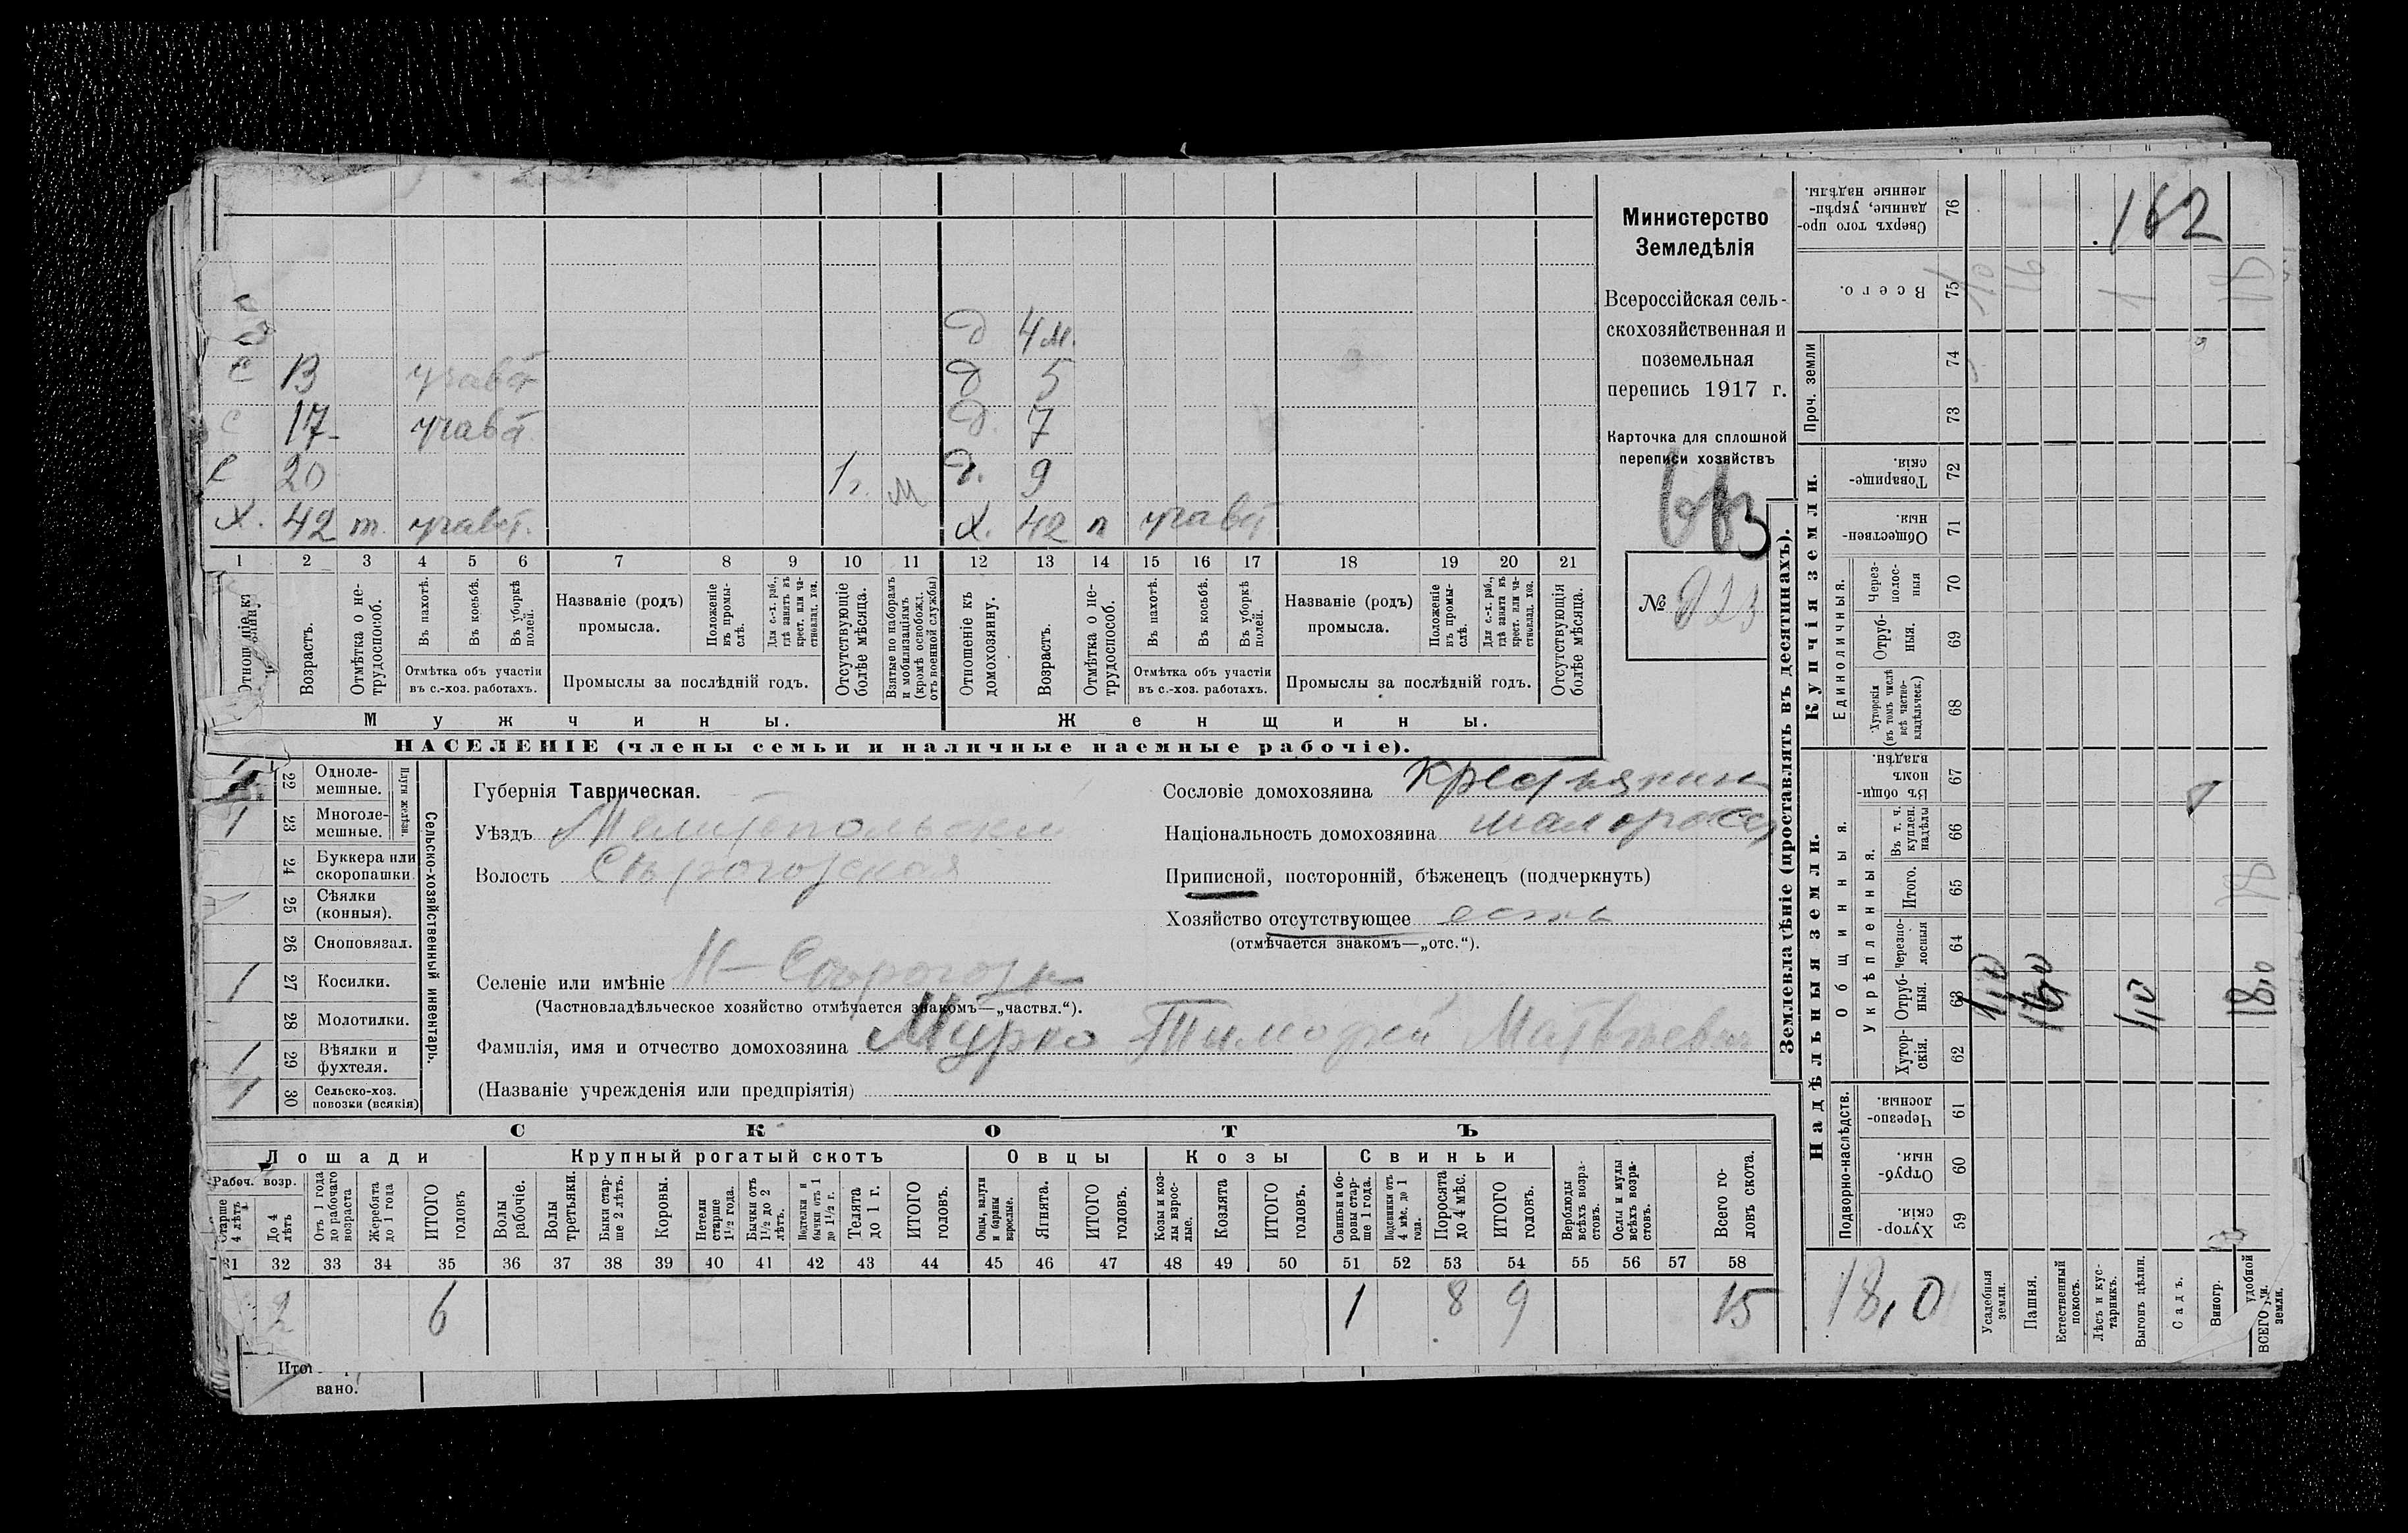 Министерство
Земледѣлія
Всероссійская сель-
скохозяйственная и
поземельная
перепись 1917 г.
Карточка для сплошной
переписи хозяйствъ
№
д 4 м.
с 13 участ д 5
с 17 участ. д. 7
с 20 1 г. м д. 9
х. 42 т. участ. х. 42 п участ
1 2 3 4 5 6 7 8 9 10 11 12 13 14 15 16 17 18 19 20 21
Возрастъ.
Отмѣтка о не-
трудоспособ.
Въ пахотѣ.
Въ косьбѣ.
Въ уборкѣ
полей.
Отмѣтка объ участіи
въ с.-хоз. работахъ.
Названіе (родъ)
промысла.
Положеніе
въ промы-
слѣ.
Для с.-х. раб.,
гдѣ занятъ въ
крест. или ча-
стновлад. хоз.
Промыслы за послѣдній годъ.
Отсутствующіе
болѣе мѣсяца.
Взятые по наборамъ
и мобилизаціямъ
(кромѣ освобожд.
отъ военной службы)
Отношеніе къ
домохозяину.
Возрастъ.
Отмѣтка о не-
трудоспособ.
Въ пахотѣ.
Въ косьбѣ.
Въ уборкѣ
полей.
Отмѣтка объ участіи
въ с.-хоз. работахъ.
Названіе (родъ)
промысла.
Положеніе
въ промы-
слѣ.
Для с.-х. раб.,
гдѣ занята въ
крест. или ча-
стновлад. хоз.
Промыслы за послѣдній годъ.
Отсутствующія
болѣе мѣсяца.
Мужчины. Женщины.
НАСЕЛЕНІЕ (члены семьи и наличные наемные рабочіе).
22 Одноле-
мешные.
1 23 Многоле-
мешные.
Плуги желѣзн.
24 Буккера или
скоропашки.
25 Сѣялки
(конныя).
26 Сноповязал.
1 27 Косилки.
28 Молотилки.
1 29 Вѣялки и
фухтеля.
1 30 Сельско-хоз.
повозки (всякія)
Сельско-хозяйственный инвентарь.
Губернія Таврическая.
Уѣздъ Мелитопольскій
Волость Сѣрогозская
Селеніе или имѣніе Н-Сѣрогозы
(Частновладѣльческое хозяйство отмѣчается знакомъ—„частвл.“).
Фамилія, имя и отчество домохозяина Мурко Тимофей Матвѣевъ
(Названіе учрежденія или предпріятія)
Сословіе домохозяина крестьянин
Національность домохозяина малоросс
Приписной, посторонній, бѣженецъ (подчеркнуть)
Хозяйство отсутствующее есть
(отмѣчается знакомъ—„отс.“).
СКОТЪ
Лошади Крупный рогатый скотъ Овцы Козы Свиньи
Рабоч. возр.
Старше
4 лѣтъ
До 4
лѣтъ
Отъ 1 года
до рабочаго
возраста
Жеребята
до 1 года
ИТОГО
головъ
Волы
рабочіе.
Волы
третьяки.
Быки стар-
ше 2 лѣтъ.
Коровы.
Нетели
старше
1½ года.
Бычки отъ
1½ до 2
лѣтъ.
Подтелки и
бычки отъ 1
до 1½ г.
Телята
до 1 г.
ИТОГО
головъ.
Овцы, валухи
и бараны
взрослые.
Ягнята.
ИТОГО
головъ.
Козы и коз-
лы взрос-
лые.
Козлята
ИТОГО
головъ.
Свиньи и бо-
ровы стар-
ше 1 года.
Подсвинки отъ
4 мѣс. до 1
года.
Поросята
до 4 мѣс.
ИТОГО
головъ.
Верблюды
всѣхъ возра-
стовъ.
Ослы и мулы
всѣхъ возра-
стовъ.
Всего го-
ловъ скота.
31 32 33 34 35 36 37 38 39 40 41 42 43 44 45 46 47 48 49 50 51 52 53 54 55 56 57 58
2 6 1 8 9 15
вано.
Землевладѣніе (проставлять въ десятинахъ).
Купчія земли.
Надѣльныя земли.
162
Сверхъ того про-
данные, укрѣп-
ленные надѣлы.
76
Всего.
75
Проч. земли
74
73
Товарище-
скія.
72
Обществен-
ныя.
71
Единоличныя.
Через-
полос-
ныя
70
Отруб-
ныя.
69
Хуторскія
(въ томъ числѣ
всѣ частно-
владѣльческ.)
68
Общинныя.
Въ общин-
номъ
владѣн.
67
Укрѣпленныя.
Въ т. ч.
куплен.
надѣлы
66
Итого.
65
Черезпо-
лосныя
64
Отруб-
ныя.
63
1,0 16,0 1,0 18,0
Хутор-
скія.
62
Подворно-наслѣдств.
Черезпо-
лосныя.
61
Отруб-
ныя.
60
Хутор-
скія.
59
18,0
Усадебныя
земли.
Пашня.
Естественный
покосъ.
Лѣсъ и кус-
тарникъ.
Выгонъ цѣлин.
Садъ.
Виногр.
ВСЕГО
удобной
земли.